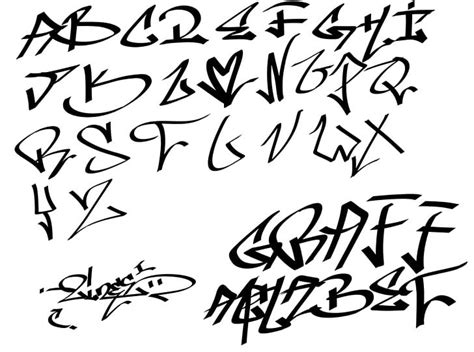 A B C D E F G H I
J K L M N O P Q
R S T U V W X
Y Z
GRAFF